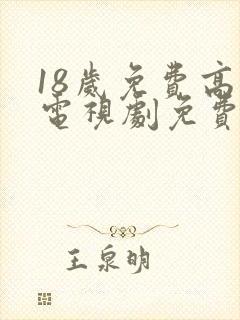 18歲免費高
電視劇免費
王泉明